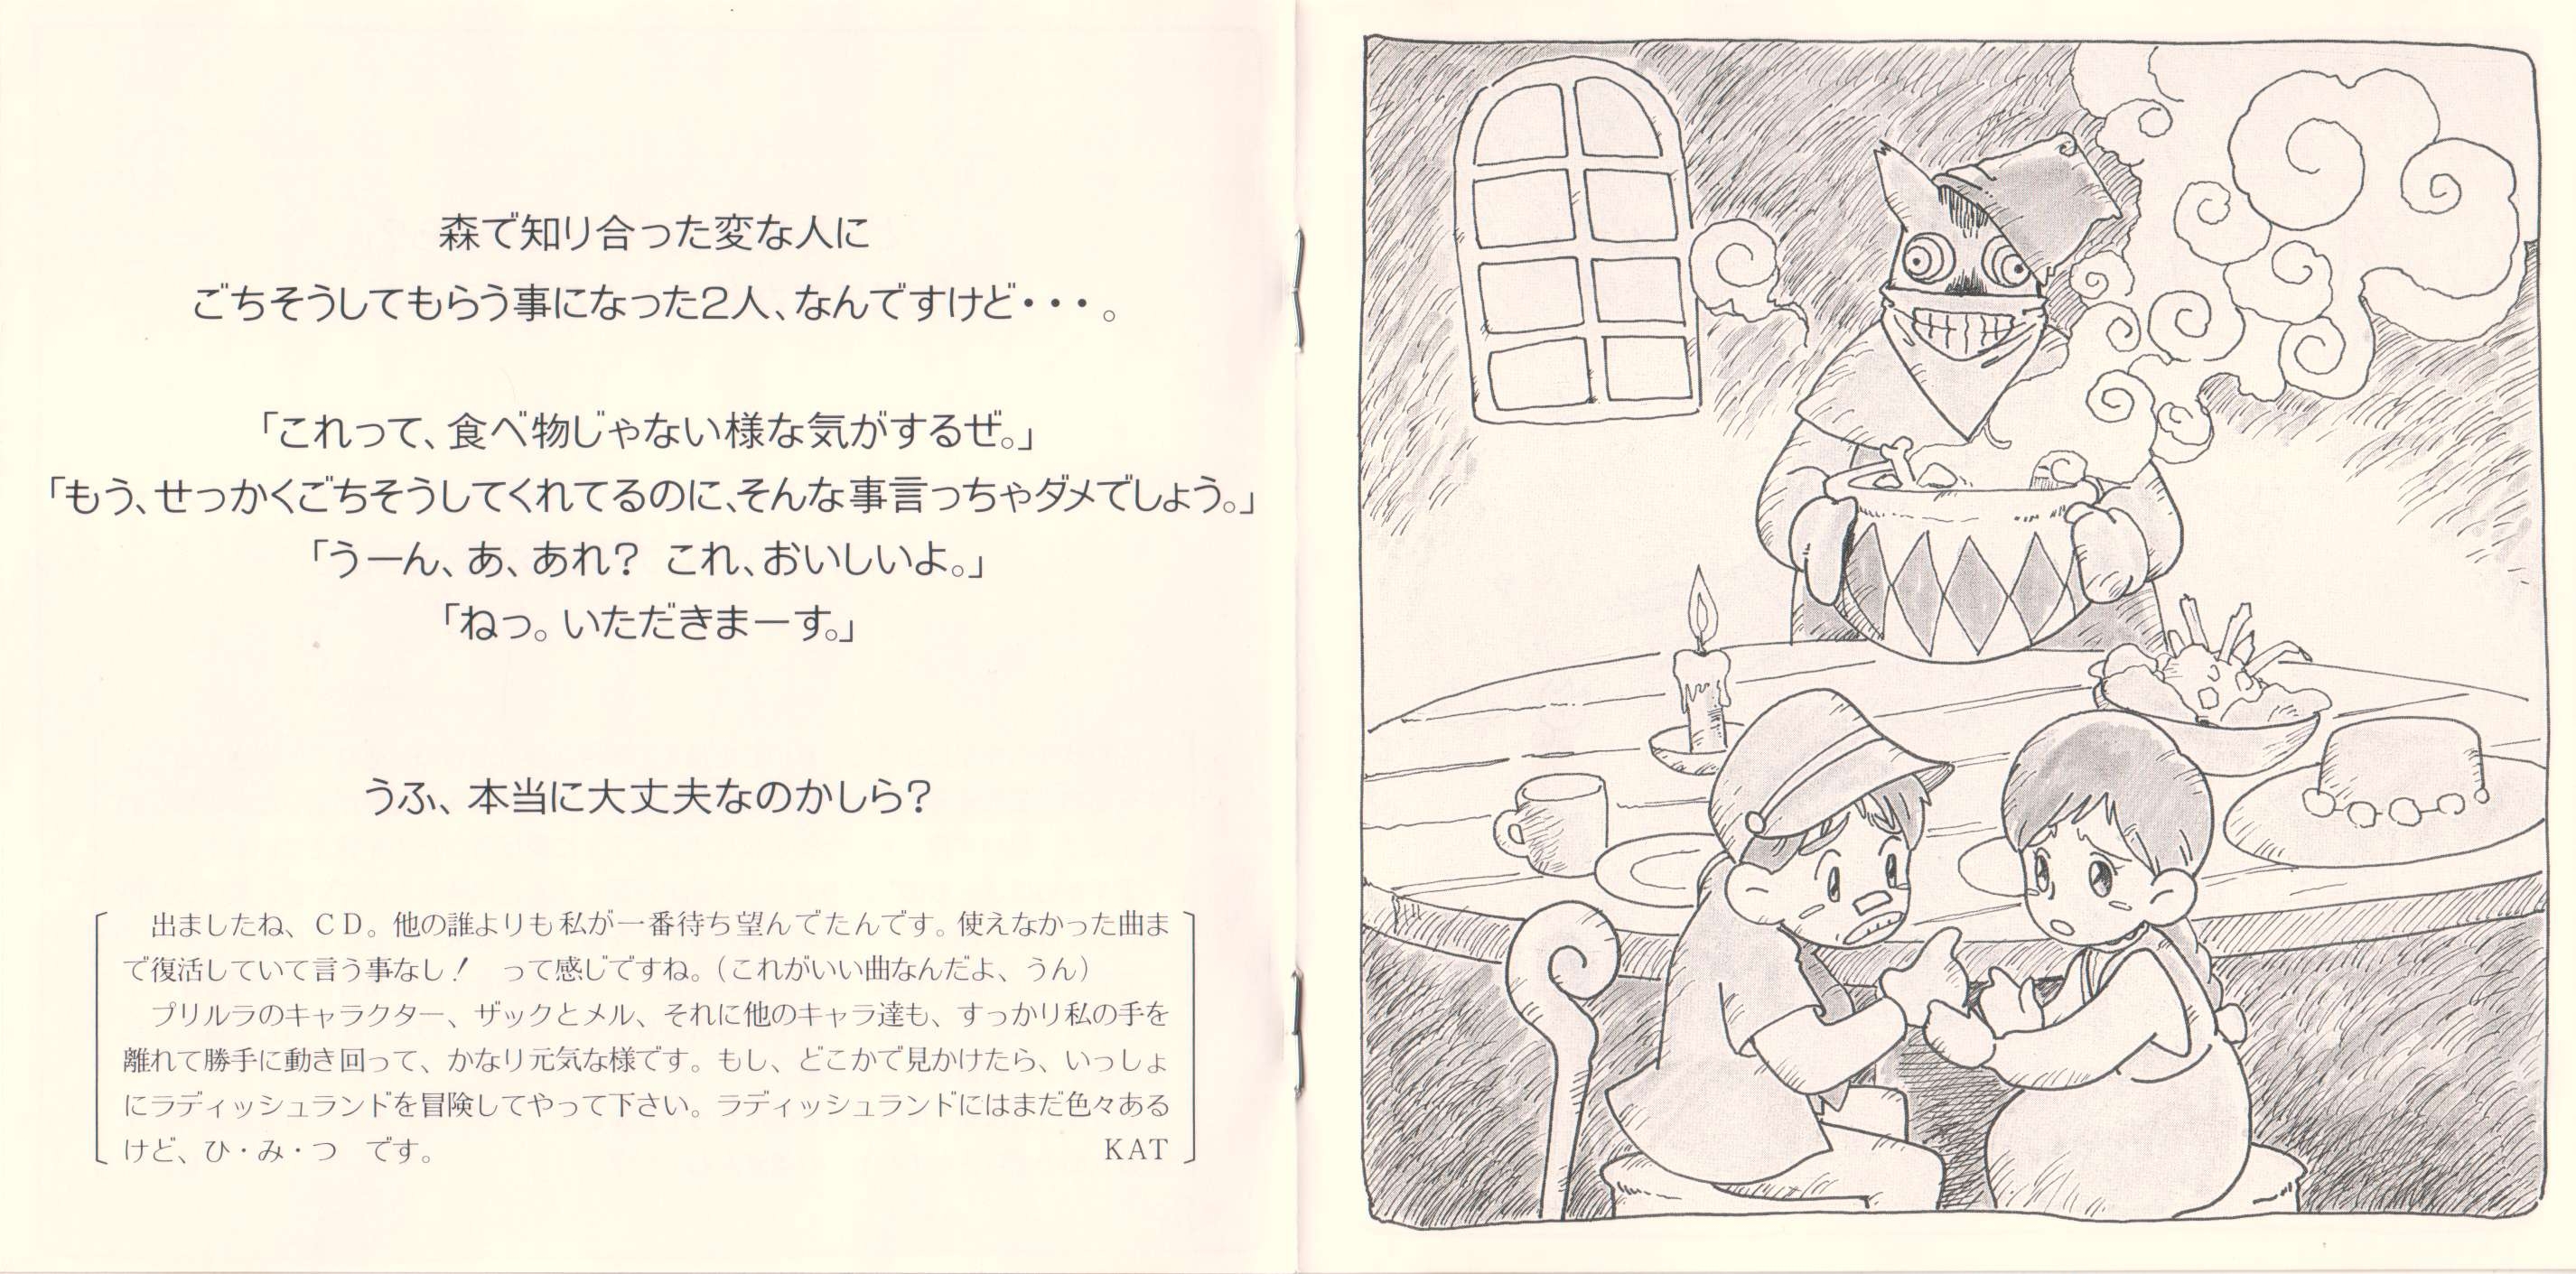 森で知り合った変な人に
ごちそうしてもらう事になった2人、なんですけど・・・。
「これって、食べ物じゃない様な気がするぜ。」
「もう、せっかくごちそうしてくれてるのに、そんな事言っちゃダメでしょう。」
「うーん、あ、あれ？ これ、おいしいよ。」
「ねっ。いただきまーす。」
うふ、本当に大丈夫なのかしら？
出ましたね、ＣＤ。他の誰よりも私が一番待ち望んでたんです。使えなかった曲ま
で復活していて言う事なし！　って感じですね。（これがいい曲なんだよ、うん）
プリルラのキャラクター、ザックとメル、それに他のキャラ達も、すっかり私の手を
離れて勝手に動き回って、かなり元気な様です。もし、どこかで見かけたら、いっしょ
にラディッシュランドを冒険してやって下さい。ラディッシュランドにはまだ色々ある
けど、ひ・み・つ　です。
KAT